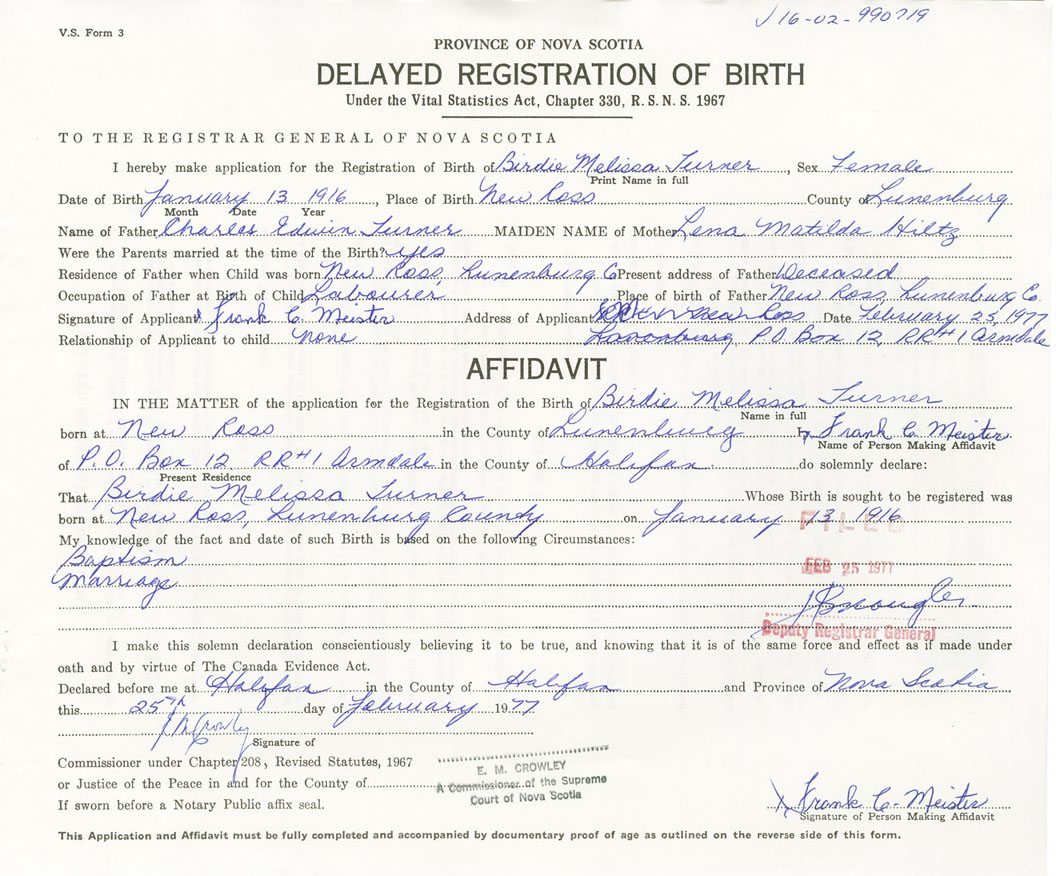 V.S. Form 3
16-02-990719
PROVINCE OF NOVA SCOTIA
DELAYED REGISTRATION OF BIRTH
Under the Vital Statistics Act, Chapter 330, R. S. N. S. 1967
TO THE REGISTRAR GENERAL OF NOVA SCOTIA
I hereby make application for the Registration of Birth of Birdie Melissa Turner, Sex Female
Print Name in full
Date of Birth January 13 1916, Place of Birth New Ross County of Lunenburg
Month Date Year
Name of Father Charles Edwin Turner MAIDEN NAME of Mother Lena Matilda Hiltz
Were the Parents married at the time of the Birth? yes
Residence of Father when Child was born New Ross, Lunenburg Co Present address of Father Deceased
Occupation of Father at Birth of Child Labourer Place of birth of Father New Ross, Lunenburg Co.
Signature of Applicant Frank C. Meister Address of Applicant New Ross Date February 25, 1977
Relationship of Applicant to child None Lunenburg, P.O. Box 12, RR#1 Armdale
AFFIDAVIT
IN THE MATTER of the application for the Registration of the Birth of Birdie Melissa Turner
Name in full
born at New Ross in the County of Lunenburg I, Frank C. Meister
Name of Person Making Affidavit
of P.O. Box 12 RR#1 Armdale in the County of Halifax do solemnly declare:
Present Residence
That Birdie Melissa Turner Whose Birth is sought to be registered was
born at New Ross, Lunenburg County on January 13 1916
FILED
My knowledge of the fact and date of such Birth is based on the following Circumstances:
Baptism
FEB 25 1977
Marriage
Deputy Registrar General
I make this solemn declaration conscientiously believing it to be true, and knowing that it is of the same force and effect as if made under
oath and by virtue of The Canada Evidence Act.
Declared before me at Halifax in the County of Halifax and Province of Nova Scotia
this 25th day of February 1977
Signature of
Commissioner under Chapter 208, Revised Statutes, 1967
E. M. CROWLEY
or Justice of the Peace in and for the County of
A Commissioner of the Supreme
Court of Nova Scotia
If sworn before a Notary Public affix seal.
X Frank C. Meister
Signature of Person Making Affidavit
This Application and Affidavit must be fully completed and accompanied by documentary proof of age as outlined on the reverse side of this form.